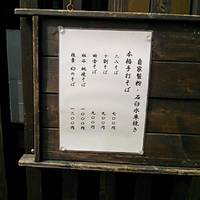 自家製粉・石臼水車挽き
本格手打そば
二八そば 七〇〇
十割そば 九〇〇
田舎そば 九〇〇
そば 一〇〇〇円
そば 一二〇〇円